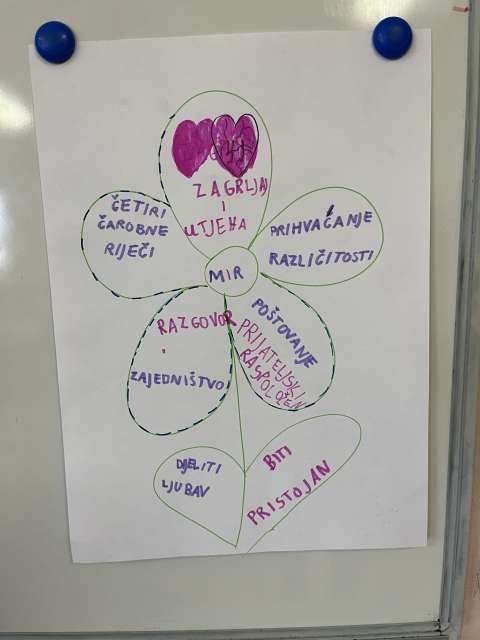 ZAGRLJAJ
I
UTJEHA
ČETIRI
ČAROBNE
RIJEČI
PRIHVAĆANJE
RAZLIČITOSTI
MIR
RAZGOVOR
I
ZAJEDNIŠTVO
POŠTOVANJE
PRIJATELJSKI
RASPOLOŽEN
DJELITI
LJUBAV
BITI
PRISTOJAN